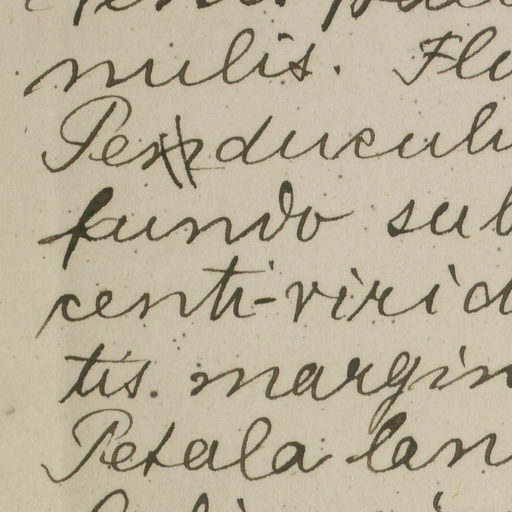 nulis. Flo
Peduculi
fundo sub
centi-virid
tis. margin
Petala lan